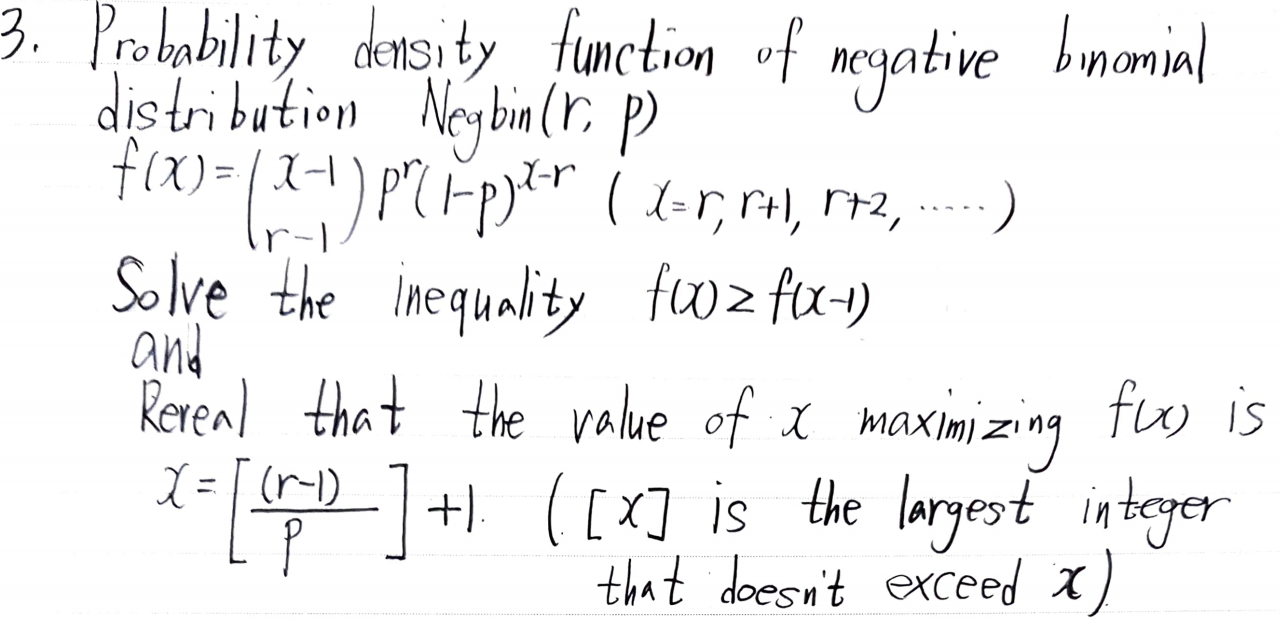 3. Probability density function of negative binomial
distribution Negbin(r, p)
f(x)=(x-1 r-1) p^r(1-p)^{x-r} (x=r, r+1, r+2, ......)
Solve the inequality f(x)≥f(x-1)
and
Rereal that the value of x maximizing f(x) is
x=[(r-1)/p]+1. ([x] is the largest integer
that doesn't exceed x)